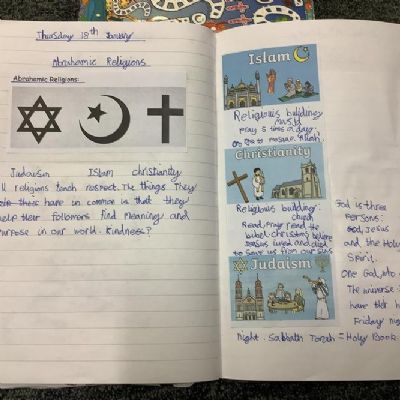 Thursday 18th January
Abrahamic Religions
Abrahamic Religions:
Judaism Islam christianity
religions teach respect. The things They
these have in common is that they
help their followers find meaning and
purpose in our world. kindness?
Islam
Religious building:
Masjid
pray 5 times a day.
Go to mosque. Allah.
Christianity
Religious building:
church
Read, pray read the
bibel. christians believe
Jesus lived and died
to save us from our sins
Judaism
Night. Sabbath Torah = Holy Book.
God is three
Persons:
God, Jesus
and the Holy
Spirit.
One God, who
The universe.
have their
Friday